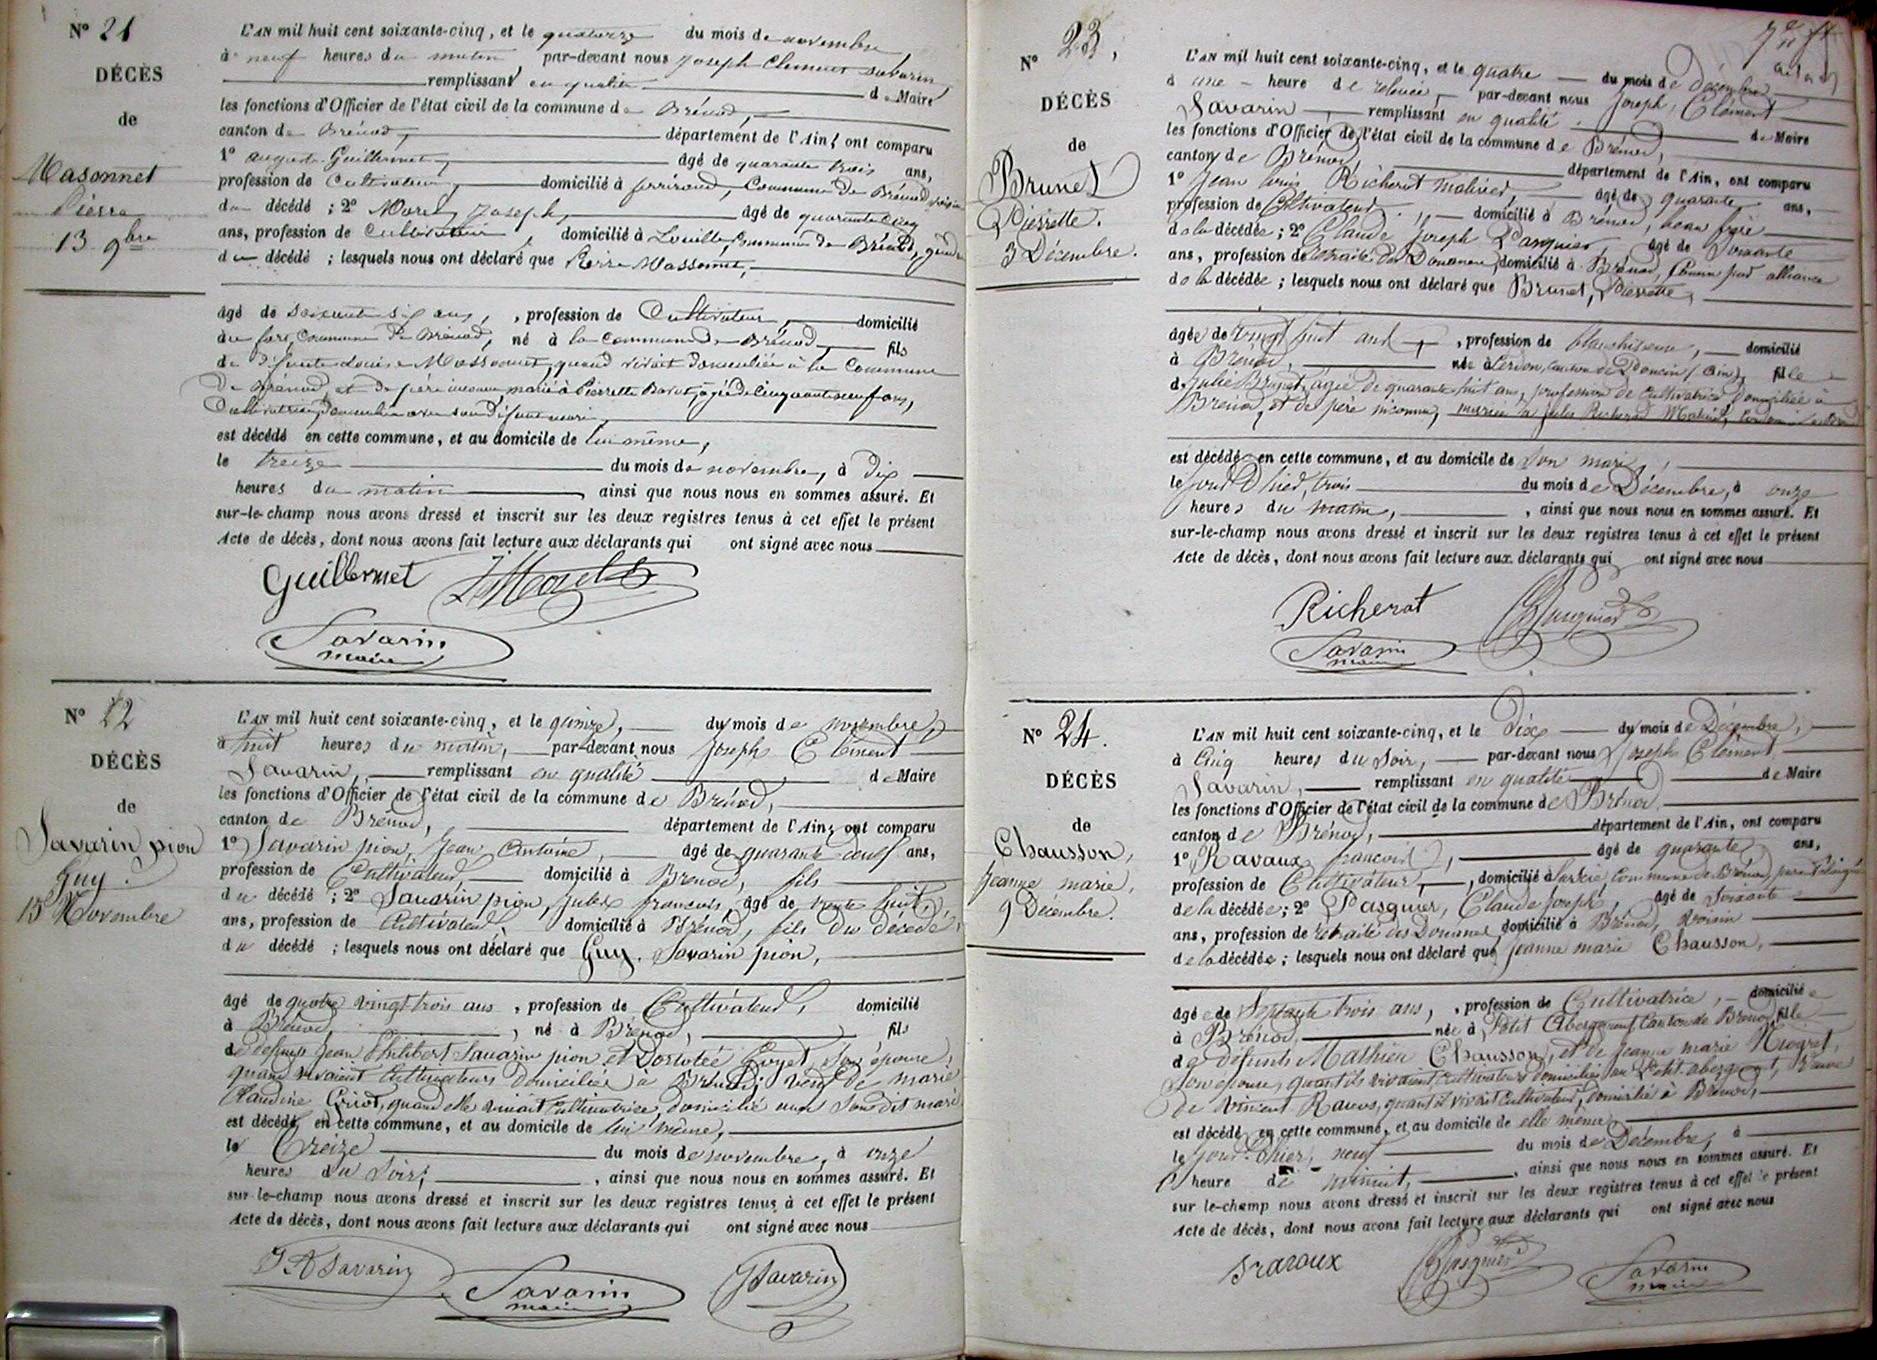 N° 21
DÉCÈS
de
Masonnet
Pierre
13 9bre
L'AN mil huit cent soixante-cinq, et le quatorze du mois de novembre
à neuf heures du matin, par-devant nous Joseph Clément Savarin,
remplissant en qualité de Maire
les fonctions d'Officier de l'état civil de la commune de Brénod,
canton de Brénod, département de l'Ain, ont comparu
1° auguste Guillermet, âgé de quarante trois ans,
profession de Cultivateur, domicilié à ferrirond, Commune de Brénod, voisin
du décédé ; 2° Morel Joseph, âgé de quarante cinq
ans, profession de Cultivateur, domicilié à Commune de Brénod, gendre
du décédé ; lesquels nous ont déclaré que Pierre Massonnet,
âgé de soixante six ans, , profession de Cultivateur, domicilié
Commune de Brénod, né à la Commune de Brénod, fils
de défunte Louise Massonnet, quand vivait domiciliée à la Commune
de Brénod, et de père inconnu, marié à Pierrette âgée de Cinquante neuf ans,
Cultivatrice, domiciliée avec son défunt mari,
est décédé en cette commune, et au domicile de lui même,
le treize du mois de novembre, à dix
heures du matin, ainsi que nous nous en sommes assuré. Et
sur-le-champ nous avons dressé et inscrit sur les deux registres tenus à cet effet le présent
Acte de décès, dont nous avons fait lecture aux déclarants qui ont signé avec nous
Guillermet J Morel
Savarin
maire
N° 22
DÉCÈS
de
Savarin pion
Guy.
13 Novembre
L'AN mil huit cent soixante-cinq, et le quinze, du mois de novembre,
à huit heures du matin, par-devant nous Joseph Clément
Savarin, remplissant en qualité de Maire
les fonctions d'Officier de l'état civil de la commune de Brénod,
canton de Brénod, département de l'Ain, ont comparu
1° Savarin pion, Jean Antoine, âgé de quarante neuf ans,
profession de Cultivateur domicilié à Brénod, fils
du décédé ; 2° Savarin pion, Jules françois, âgé de trente huit
ans, profession de Cultivateur, domicilié à Brénod, fils du décédé,
du décédé ; lesquels nous ont déclaré que Guy, Savarin pion,
âgé de quatre vingt trois ans , profession de Cultivateur, domicilié
à Brénod, , né à Brénod, fils
de défunts Jean Philibert Savarin pion et Dorotée Goyet, son épouse,
quand vivaient Cultivateurs domiciliés à Brénod, veuf de marie
Claudine quand elle vivait Cultivatrice, domicilié avec son dit mari
est décédé, en cette commune, et au domicile de lui même,
le Treize du mois de novembre, à onze
heures du soir, , ainsi que nous nous en sommes assuré. Et
sur-le-champ nous avons dressé et inscrit sur les deux registres tenus à cet effet le présent
Acte de décès, dont nous avons fait lecture aux déclarants qui ont signé avec nous
J A Savarin Savarin J Savarin
maire
N° 23,
DÉCÈS
de
Brunet
Pierrette.
3 Décembre.
L'AN mil huit cent soixante-cinq, et le quatre du mois de Décembre
à une heure de relevée, par-devant nous Joseph, Clément
Savarin, remplissant en qualité de Maire
les fonctions d'Officier de l'état civil de la commune de Brénod,
canton de Brénod, département de l'Ain, ont comparu
1° Jean louis Richerot âgé de quarante ans,
profession de Cultivateur domicilié à Brénod, beau frère
de la décédée ; 2° Claude Joseph Pasquier, âgé de Soixante
ans, profession de retraité des Douanes, domicilié à Brénod, par alliance
de la décédée ; lesquels nous ont déclaré que Brunet, Pierrette,
âgée de vingt huit ans , profession de blanchisseuse, domicilié
à Brénod, née à Cerdon, Canton de Poncin (Ain), fille
de Julie Brunet, âgée de quarante huit ans, profession de Cultivatrice domiciliée à
Brénod, et de père inconnu, mariée à Jules Richerot
est décédé, en cette commune, et au domicile de son mari,
le jour d'hier, trois du mois de Décembre, à onze
heures du matin, , ainsi que nous nous en sommes assuré. Et
sur-le-champ nous avons dressé et inscrit sur les deux registres tenus à cet effet le présent
Acte de décès, dont nous avons fait lecture aux déclarants qui ont signé avec nous
Richerot Pasquier
Savarin
maire
N° 24.
DÉCÈS
de
Chausson,
Jeanne marie,
9 Décembre.
L'AN mil huit cent soixante-cinq, et le Dix du mois de Décembre,
à Cinq heures du Soir, par-devant nous Joseph Clément
Savarin, remplissant en qualité de Maire
les fonctions d'Officier de l'état civil de la commune de Brénod
canton de Brénod, département de l'Ain, ont comparu
1° Ravaux françois, âgé de quarante ans,
profession de Cultivateur, , domicilié à commune de Brénod,
de la décédée ; 2° Pasquier, Claude Joseph, âgé de Soixante
ans, profession de retraité des Douanes domicilié à Brénod, voisin
de la décédée ; lesquels nous ont déclaré que Jeanne marie Chausson,
âgée de Septante trois ans, , profession de Cultivatrice, domiciliée
à Brénod, née à Petit Abergement Canton de Brénod, fille
de défunts Mathieu Chausson, et de Jeanne marie Niogret,
son épouse, quand ils vivaient Cultivateurs domiciliés au Petit abergement, Veuve
de Vincent Ravos, quand il vivait Cultivateur, domicilié à Brénod,
est décédé en cette commune, et au domicile de elle même
le jour d'hier, neuf du mois de Décembre, à
heure de minuit, , ainsi que nous nous en sommes assuré. Et
sur le-champ nous avons dressé et inscrit sur les deux registres tenus à cet effet le présent
Acte de décès, dont nous avons fait lecture aux déclarants qui ont signé avec nous
Pasquier Savarin
maire